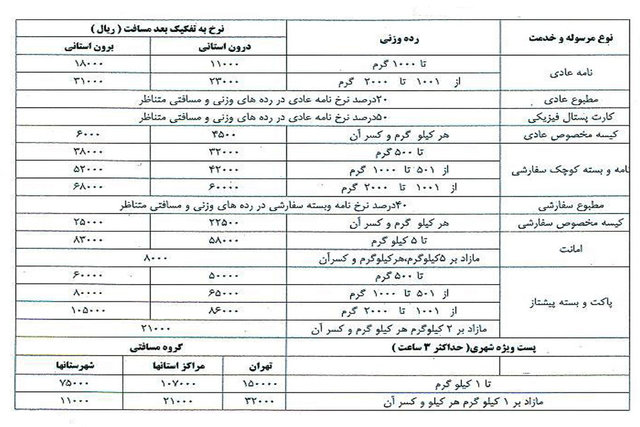 نوع مرسوله و خدمت رده وزنی نرخ به تفکیک بعد مسافت ( ریال )
درون استانی برون استانی
نامه عادی تا ۱۰۰۰ گرم ۱۱۰۰۰ ۱۸۰۰۰
از ۱۰۰۱ تا ۲۰۰۰ گرم ۲۳۰۰۰ ۳۱۰۰۰
مطبوع عادی ۲۰درصد نرخ نامه عادی در رده های وزنی و مسافتی متناظر
کارت پستال فیزیکی ۵۰درصد نرخ نامه عادی در رده های وزنی و مسافتی متناظر
کیسه مخصوص عادی هر کیلو گرم و کسر آن ۴۵۰۰ ۶۰۰۰
نامه و بسته کوچک سفارشی تا ۵۰۰ گرم ۳۲۰۰۰ ۳۸۰۰۰
از ۵۰۱ تا ۱۰۰۰ گرم ۴۲۰۰۰ ۵۲۰۰۰
از ۱۰۰۱ تا ۲۰۰۰ گرم ۶۰۰۰۰ ۶۸۰۰۰
مطبوع سفارشی ۴۰درصد نرخ نامه وبسته سفارشی در رده های وزنی و مسافتی متناظر
کیسه مخصوص سفارشی هر کیلو گرم و کسر آن ۲۲۵۰۰ ۲۵۰۰۰
امانت تا ۵ کیلو گرم ۵۸۰۰۰ ۸۳۰۰۰
مازاد بر ۵کیلوگرم،هرکیلوگرم و کسرآن ۸۰۰۰
پاکت و بسته پیشتاز تا ۵۰۰ گرم ۵۰۰۰۰ ۶۰۰۰۰
از ۵۰۱ تا ۱۰۰۰ گرم ۶۵۰۰۰ ۸۰۰۰۰
از ۱۰۰۱ تا ۲۰۰۰ گرم ۸۶۰۰۰ ۱۰۵۰۰۰
مازاد بر ۲ کیلوگرم هر کیلو گرم و کسر آن ۲۱۰۰۰
پست ویژه شهری( حداکثر ۳ ساعت ) گروه مسافتی
تهران مراکز استانها شهرستانها
تا ۱ کیلو گرم ۱۵۰۰۰۰ ۱۰۷۰۰۰ ۷۵۰۰۰
مازاد بر ۱ کیلو گرم هر کیلو و کسر آن ۳۲۰۰۰ ۲۱۰۰۰ ۱۱۰۰۰